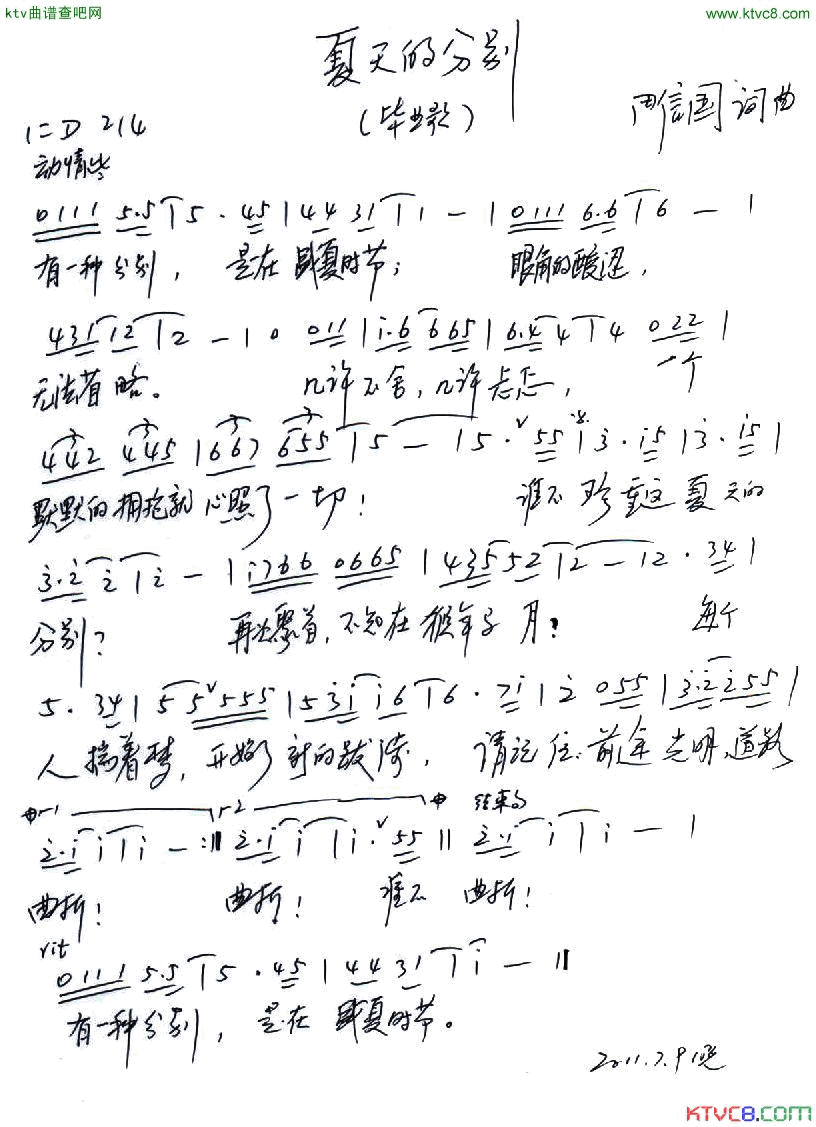 ktv曲谱查吧网 www.ktvc8.com
夏天的分别
(毕业歌)
信国 词曲
1=D 2/4
动情些
0111 5.5 | 5 · 45 | 44 31 | 1 - | 0111 6.6 | 6 - |
有一种分别， 是在盛夏时节； 眼角的酸涩，
431 12 | 2 - | 0 011 | i.6 665 | 6.4 4 | 4 022 |
无法省略。 几许不舍，几许忐忑， 一个
442 445 | 667 655 | 5 - | 5 · ˅ 55 | 3 · i5 | 3 · i5 |
默默的拥抱就心照了一切！ 谁不珍重这夏天的
3.2 2 | 2 - | i766 0665 | 435 52 | 2 - | 2 · 34 |
分别？ 再次聚首，不知在猴年马月？ 每个
5 · 34 | 5 5 ˅ 555 | 53i i6 | 6 · 7i | 2 055 | 3.2 255 |
人揣着梦，开始了新的跋涉， 请记住：前途光明、道路
1 2 结束句
2.i i | i - :‖ 2.i i | i · ˅ 55 ‖ 2.i i | i - |
曲折！ 曲折！ 谁不 曲折！
rit
0111 5.5 | 5 · 45 | 44 31 | i - ‖
有一种分别， 是在盛夏时节。
2011.7.9 晚
KTVC8.COM